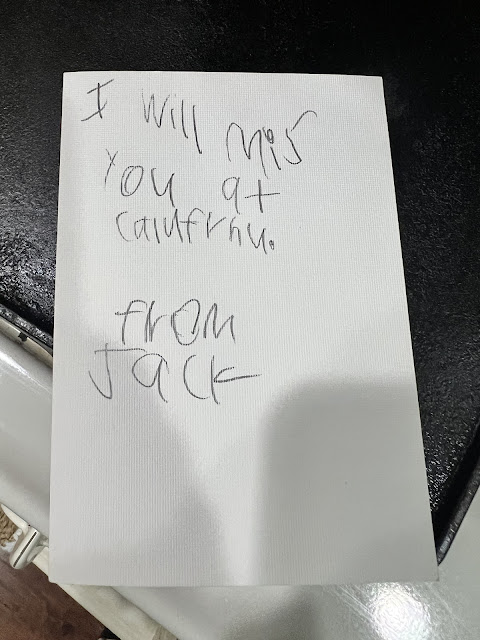 I Will Mis
You at
calufrnu.
from
Jack